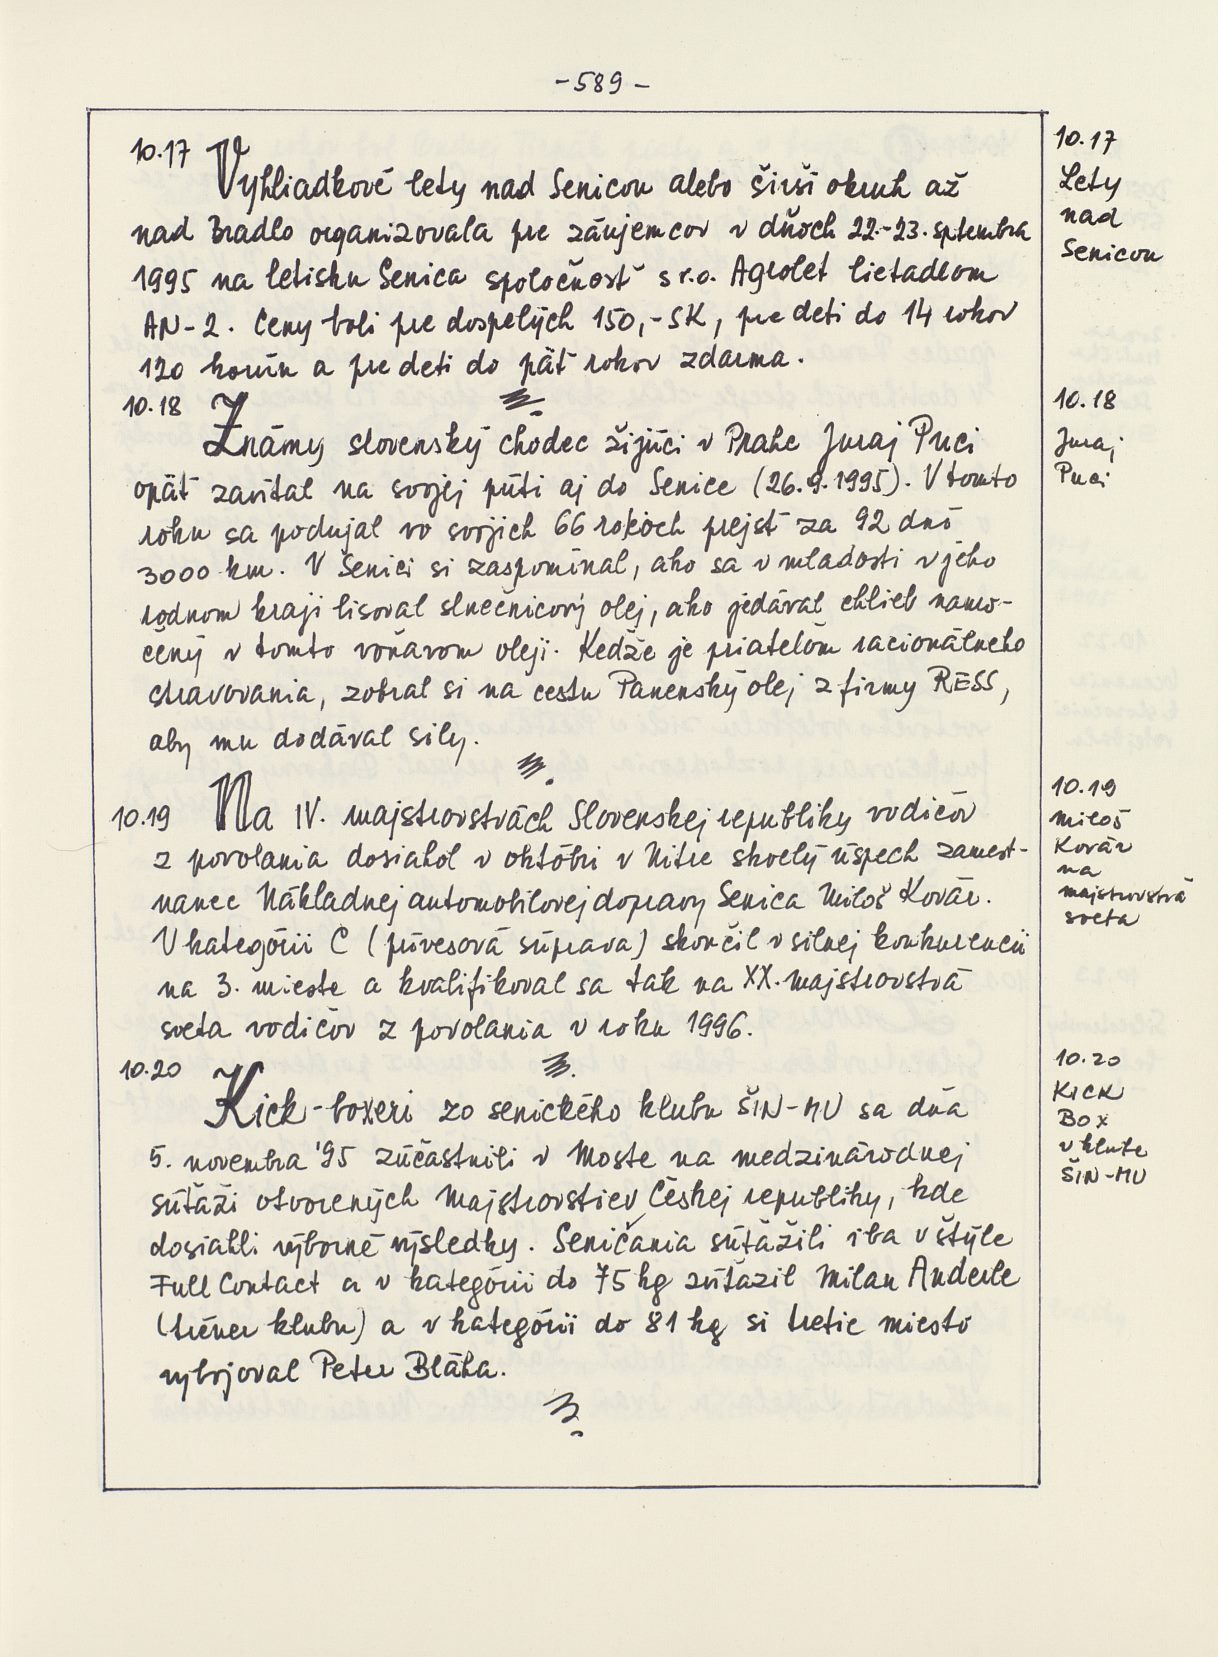 -589-
10.17 Vyhliadkové lety nad Senicou alebo širší okruh až
nad Bradlo organizovala pre záujemcov v dňoch 22.-23. sptembra
1995 na letisku Senica spoločnosť s r.o. Agrolet lietadlom
AN-2. Ceny boli pre dospelých 150,-SK, pre deti do 14 rokov
120 korún a pre deti do päť rokov zdarma.
10.18 Známy slovenský chodec žijúci v Prahe Juraj Puci
opäť zavítal na svojej púti aj do Senice (26.9.1995). V tomto
roku sa podujal vo svojich 66 rokoch prejsť za 92 dní
3000 km. V Senici si zaspomínal, ako sa v mladosti v jeho
rodnom kraji lisoval slnečnicový olej, ako jedával chlieb namo-
čený v tomto voňavom oleji. Kedže je priateľom racionálneho
stravovania, zobral si na cestu Panenský olej z firmy RESS,
aby mu dodával sily.
10.19 Na IV. majstrovstvách Slovenskej republiky vodičov
z povolania dosiahol v októbri v Nitre skvelý úspech zamest-
nanec Nákladnej automobilovej dopravy Senica Miloš Kovár.
V kategórii C (prívesová súprava) skončil v silnej konkurencii
na 3. mieste a kvalifikoval sa tak na XX. majstrovstvá
sveta vodičov z povolania v roku 1996.
10.20 Kick-boxeri zo senického klubu ŠIN-MU sa dňa
5. novembra '95 zúčastnili v Moste na medzinárodnej
súťaži otvorených Majstrovstiev Českej republiky, kde
dosiahli výborné výsledky. Seničania súťažili iba v štýle
Full Contact a v kategórii do 75 kg zúťazil Milan Anderle
(tréner klubu) a v kategórii do 81 kg si tretie miesto
vybojoval Peter Bláha.
10.17
Lety
nad
Senicou
10.18
Juraj
Puci
10.19
Miloš
Kovár
na
majstrovstvá
sveta
10.20
Kick
Box
v klube
ŠIN-MU